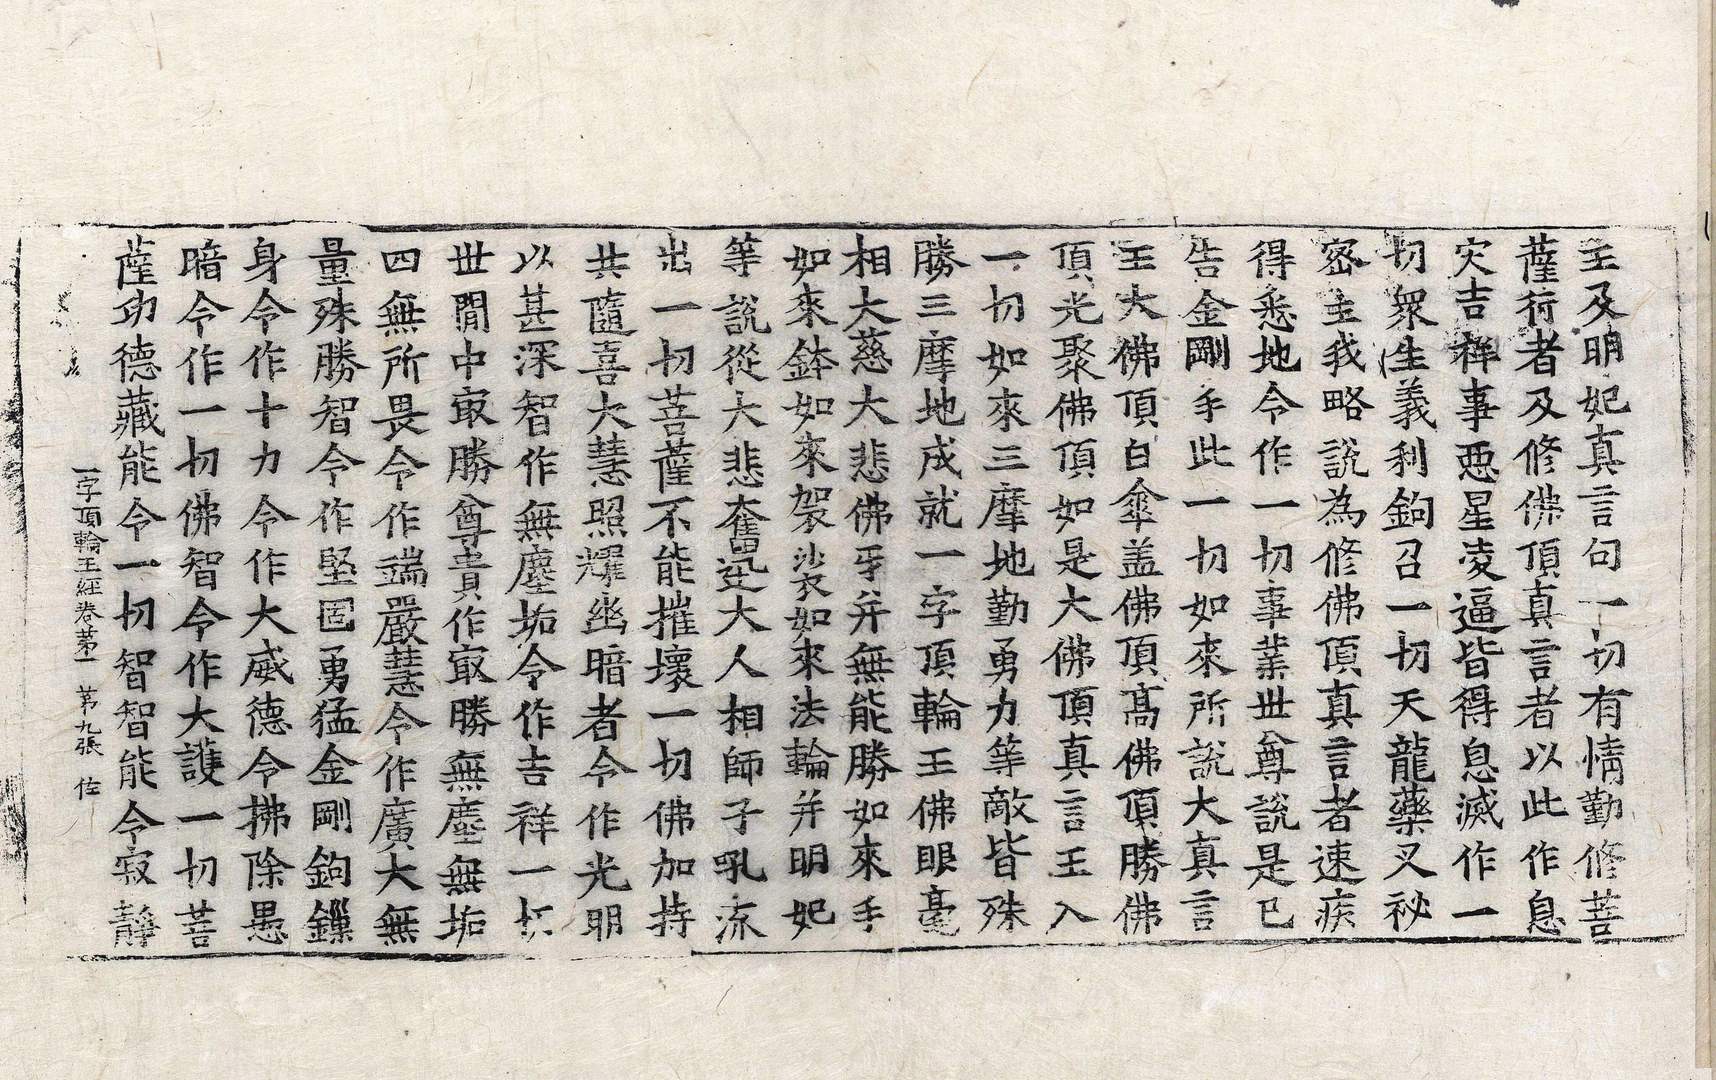 王及明妃真言句一切有情勤修菩
薩行者及修佛頂真言者以此作息
灾吉祥事惡星凌逼皆得息滅作一
切衆生義利鉤召一切天龍藥叉祕
密主我略說為修佛頂真言者速疾
得悉地令作一切事業世尊說是已
告金剛手此一切如來所說大真言
王大佛頂白傘盖佛頂高佛頂勝佛
頂光聚佛頂如是大佛頂真言王入
一切如來三摩地勤勇力等敵皆殊
勝三摩地成就一字頂輪王佛眼毫
相大慈大悲佛牙并無能勝如來手
如來鉢如來袈裟如來法輪并明妃
等說從大悲奮迅大人相師子吼流
出一切菩薩不能摧壞一切佛加持
共隨喜大慧照耀幽暗者令作光明
以甚深智作無塵垢令作吉祥一切
世閒中㝡勝尊貴作㝡勝無塵無垢
四無所畏令作端嚴慧令作廣大無
量殊勝智令作堅固勇猛金剛鉤鏁
身令作十力令作大威德令拂除愚
暗令作一切佛智令作大護一切菩
薩功德藏能令一切智智能令寂靜
一字頂輪王經卷第一 第九張 佐